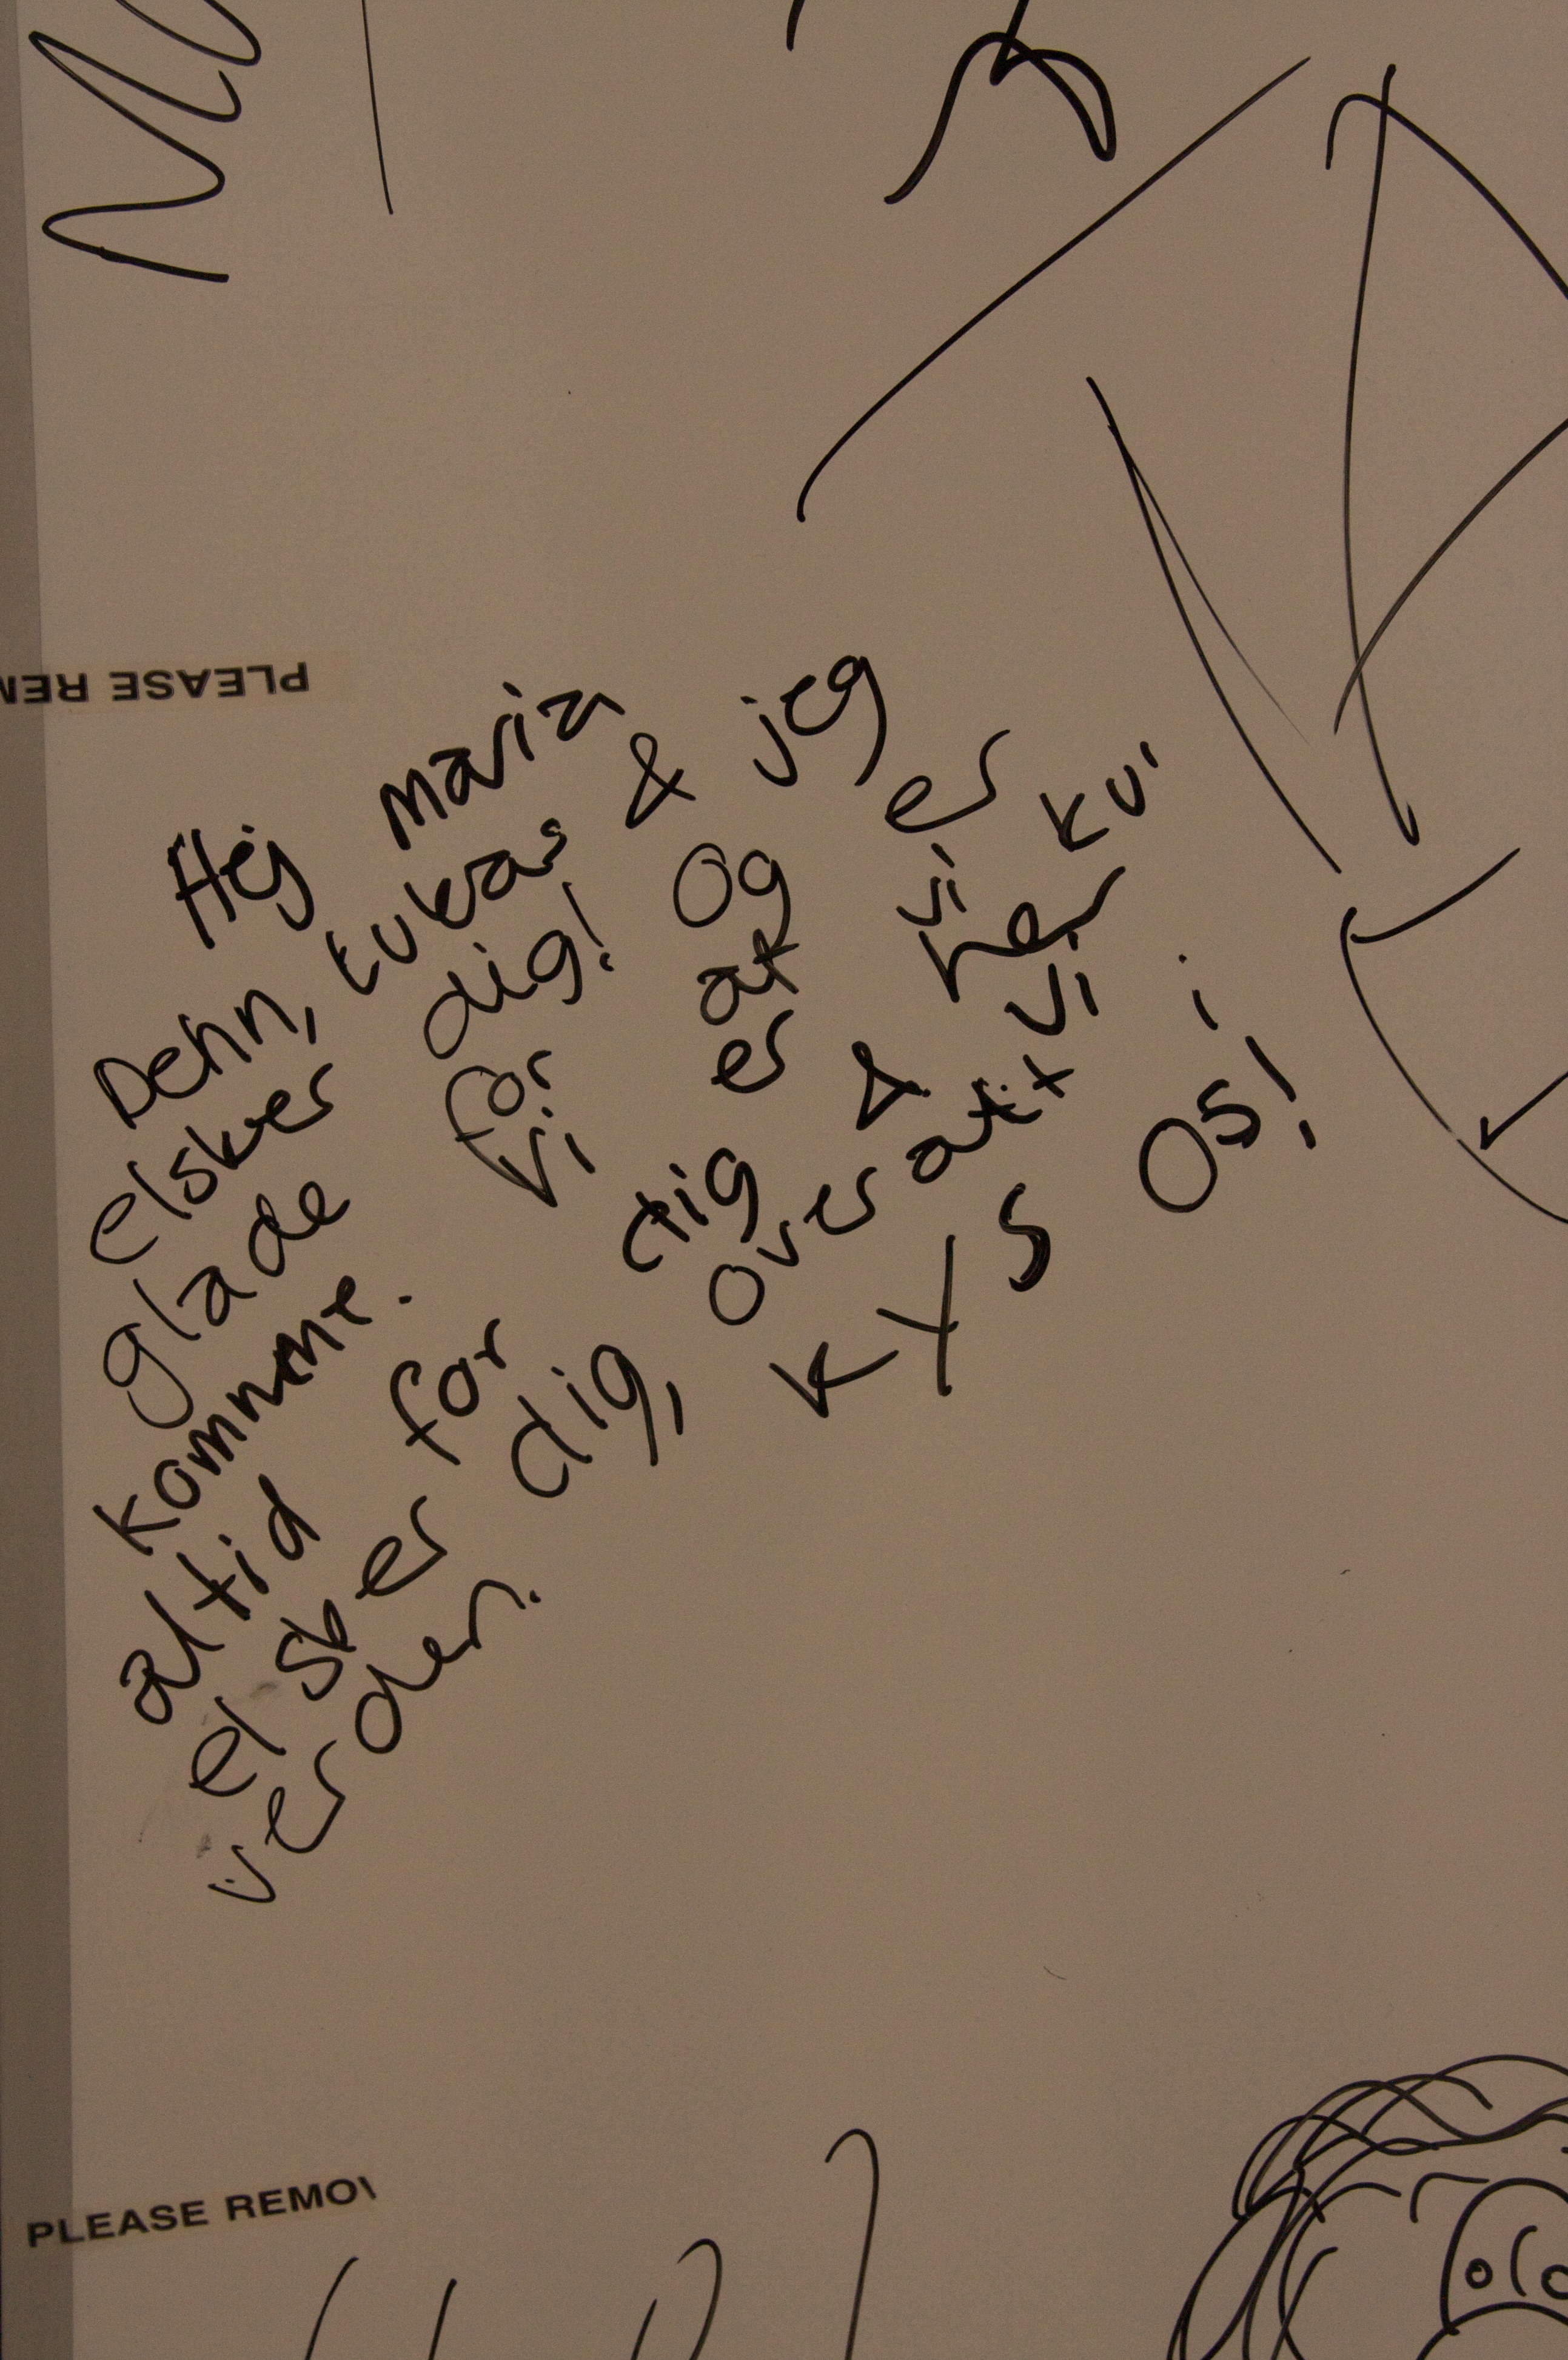 PLEASE REM
Hej Maria
Denn, Lukas & jeg
elsker dig! Og er
glade for at vi ku'
komme. Vi er her
altid for dig & vi
elsker dig, over alt i
verden. KYS OS!
PLEASE REMOV